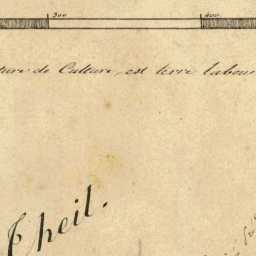 300 400
ture de Culture, est terre labour
Theil.